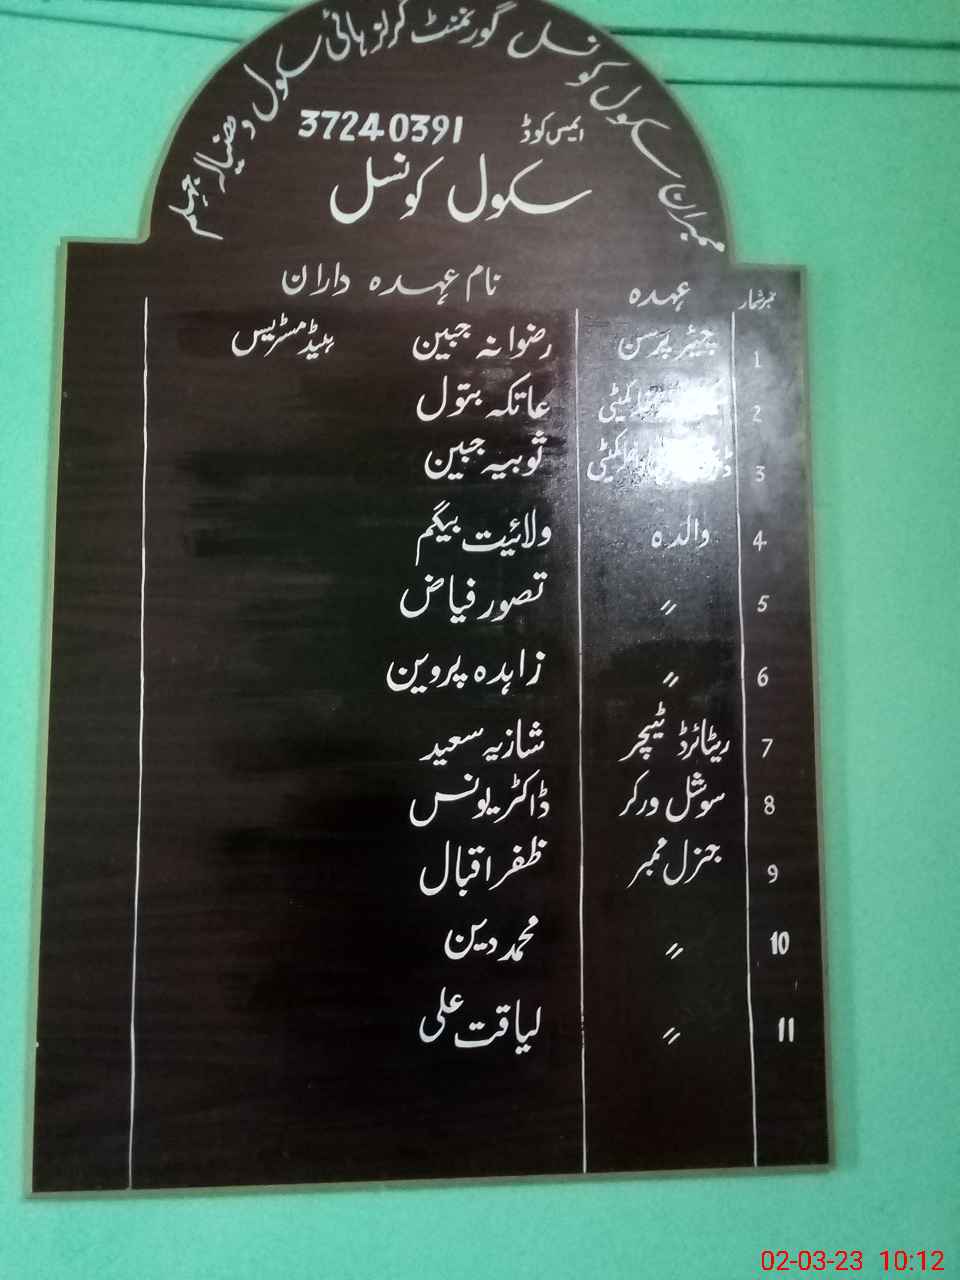 ممبران سکول کونسل گورنمنٹ گرلز ہائی سکول ودھنیالہ جہلم
ایمس کوڈ 37240391
سکول کونسل
نمبر شمار عہدہ نام عہدہ داران
1 چیئر پرسن رضوانہ جبین ہیڈمسٹریس
2 کمیٹی عاتکہ بتول
3 کمیٹی ثوبیہ جبین
4 والدہ ولائیت بیگم
5 〃 تصور فیاض
6 〃 زاہدہ پروین
7 ریٹائرڈ ٹیچر شازیہ سعید
8 سوشل ورکر ڈاکٹر یونس
9 جنرل ممبر ظفر اقبال
10 〃 محمد دین
11 〃 لیاقت علی
02-03-23 10:12